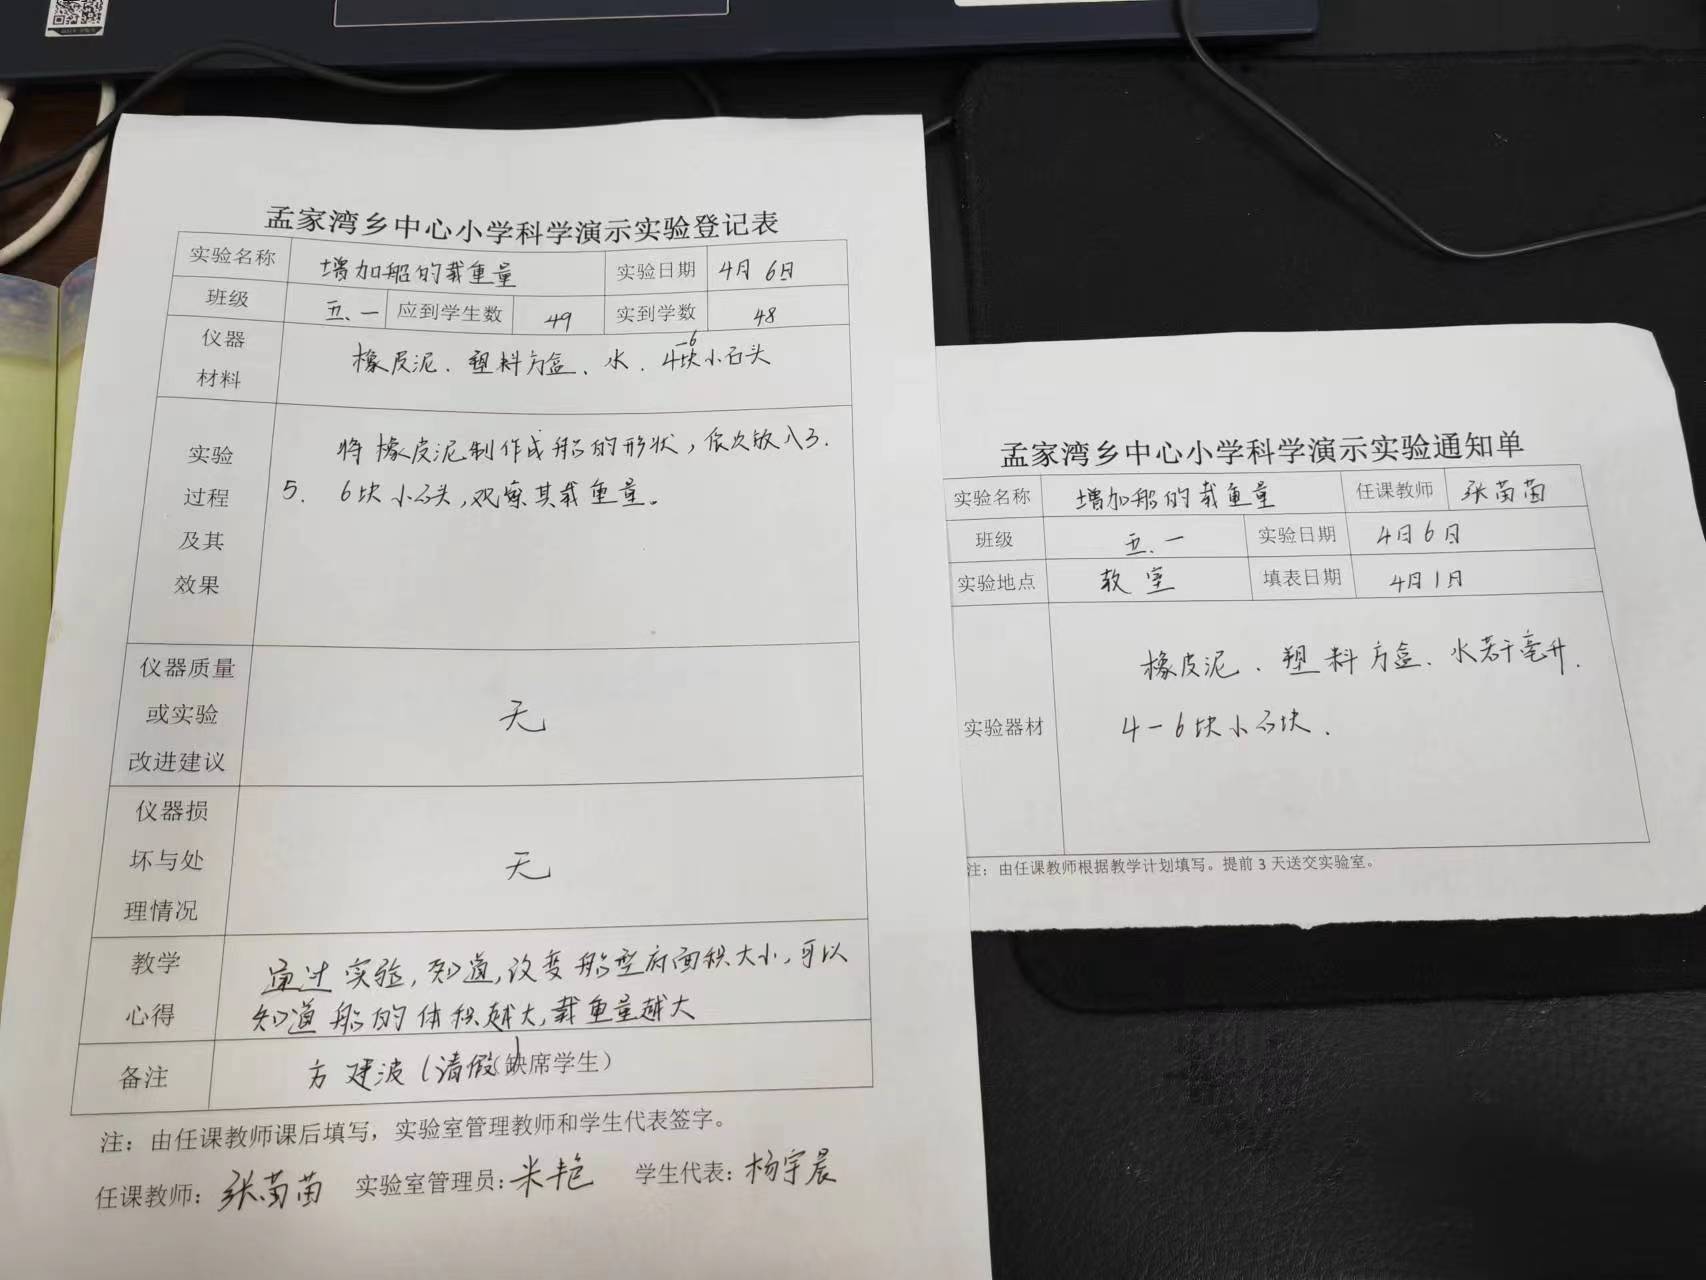 孟家湾乡中心小学科学演示实验登记表
实验名称 增加船的载重量 实验日期 4月6日
班级 五.一 应到学生数 49 实到学数 48
仪器材料 橡皮泥、塑料方盒、水、4-6块小石头
实验过程及其效果 将橡皮泥制作成船的形状,依次放入3.
5. 6块小石头,观察其载重量。
仪器质量或实验改进建议 无
仪器损坏与处理情况 无
教学心得 通过实验,知道,改变船型底面积大小,可以
知道船的体积越大,载重量越大
备注 方建波(请假(缺席学生)
注:由任课教师课后填写,实验室管理教师和学生代表签字。
任课教师:张苗苗 实验室管理员:米艳 学生代表:杨宇晨
孟家湾乡中心小学科学演示实验通知单
实验名称 增加船的载重量 任课教师 张苗苗
班级 五.一 实验日期 4月6日
实验地点 教室 填表日期 4月1日
实验器材 橡皮泥、塑料方盒、水若干毫升.
4-6块小石块.
注:由任课教师根据教学计划填写。提前3天送交实验室。